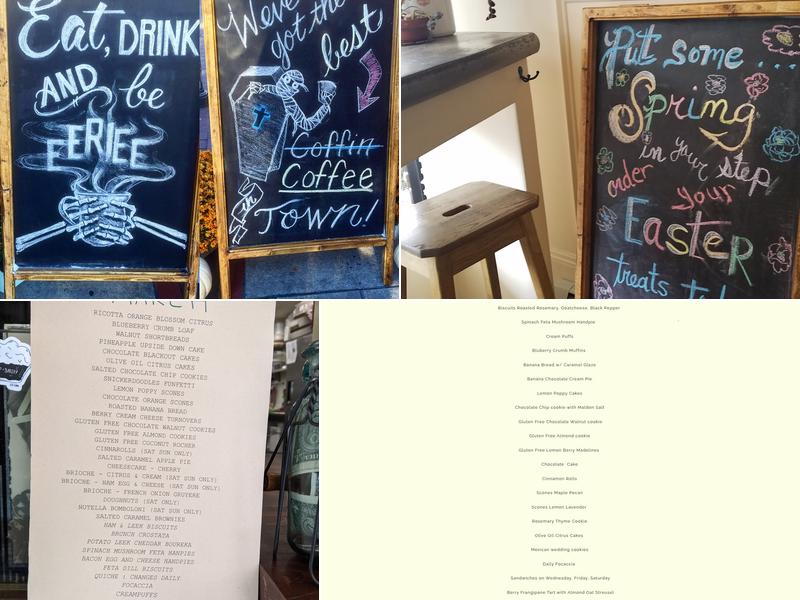 Eat, DRINK
AND be
EERIEE
We've
got the
best
Coffin
Coffee
in
TOWN!
Put some ...
Spring
in your step
order your
Easter
treats
MARCH
RICOTTA ORANGE BLOSSOM CITRUS
BLUEBERRY CRUMB LOAF
WALNUT SHORTBREADS
PINEAPPLE UPSIDE DOWN CAKE
CHOCOLATE BLACKOUT CAKES
OLIVE OIL CITRUS CAKES
SALTED CHOCOLATE CHIP COOKIES
SNICKERDOODLES FUNFETTI
LEMON POPPY SCONES
CHOCOLATE ORANGE SCONES
ROASTED BANANA BREAD
BERRY CREAM CHEESE TURNOVERS
GLUTEN FREE CHOCOLATE WALNUT COOKIES
GLUTEN FREE ALMOND COOKIES
GLUTEN FREE COCONUT ROCHER
CINNAROLLS (SAT SUN ONLY)
SALTED CARAMEL APPLE PIE
CHEESECAKE - CHERRY
BRIOCHE - CITRUS & CREAM (SAT SUN ONLY)
BRIOCHE - HAM EGG & CHEESE (SAT SUN ONLY)
BRIOCHE - FRENCH ONION GRUYERE
DOUGHNUTS (SAT ONLY)
NUTELLA BOMBOLONI (SAT SUN ONLY)
SALTED CARAMEL BROWNIES
HAM & LEEK BISCUITS
BRUNCH CROSTATA
POTATO LEEK CHEDDAR BOUREKA
SPINACH MUSHROOM FETA HANPIES
BACON EGG AND CHEESE HANDPIES
FETA DILL BISCUITS
QUICHE : CHANGES DAILY
FOCACCIA
CREAMPUFFS
Biscuits Roasted Rosemary, Goatcheese, Black Pepper
Spinach Feta Mushroom Handpie
Cream Puffs
Bluberry Crumb Muffins
Banana Bread w/ Caramel Glaze
Banana Chocolate Cream Pie
Lemon Poppy Cakes
Chocolate Chip cookie with Maldon Salt
Gluten Free Chocolate Walnut cookie
Gluten Free Almond cookie
Gluten Free Lemon Berry Madelines
Chocolate Cake
Cinnamon Rolls
Scones Maple Pecan
Scones Lemon Lavender
Rosemary Thyme Cookie
Olive Oil Citrus Cakes
Mexican wedding cookies
Daily Focaccia
Sandwiches on Wednesday, Friday, Saturday
Berry Frangipane Tart with Almond Oat Streusel